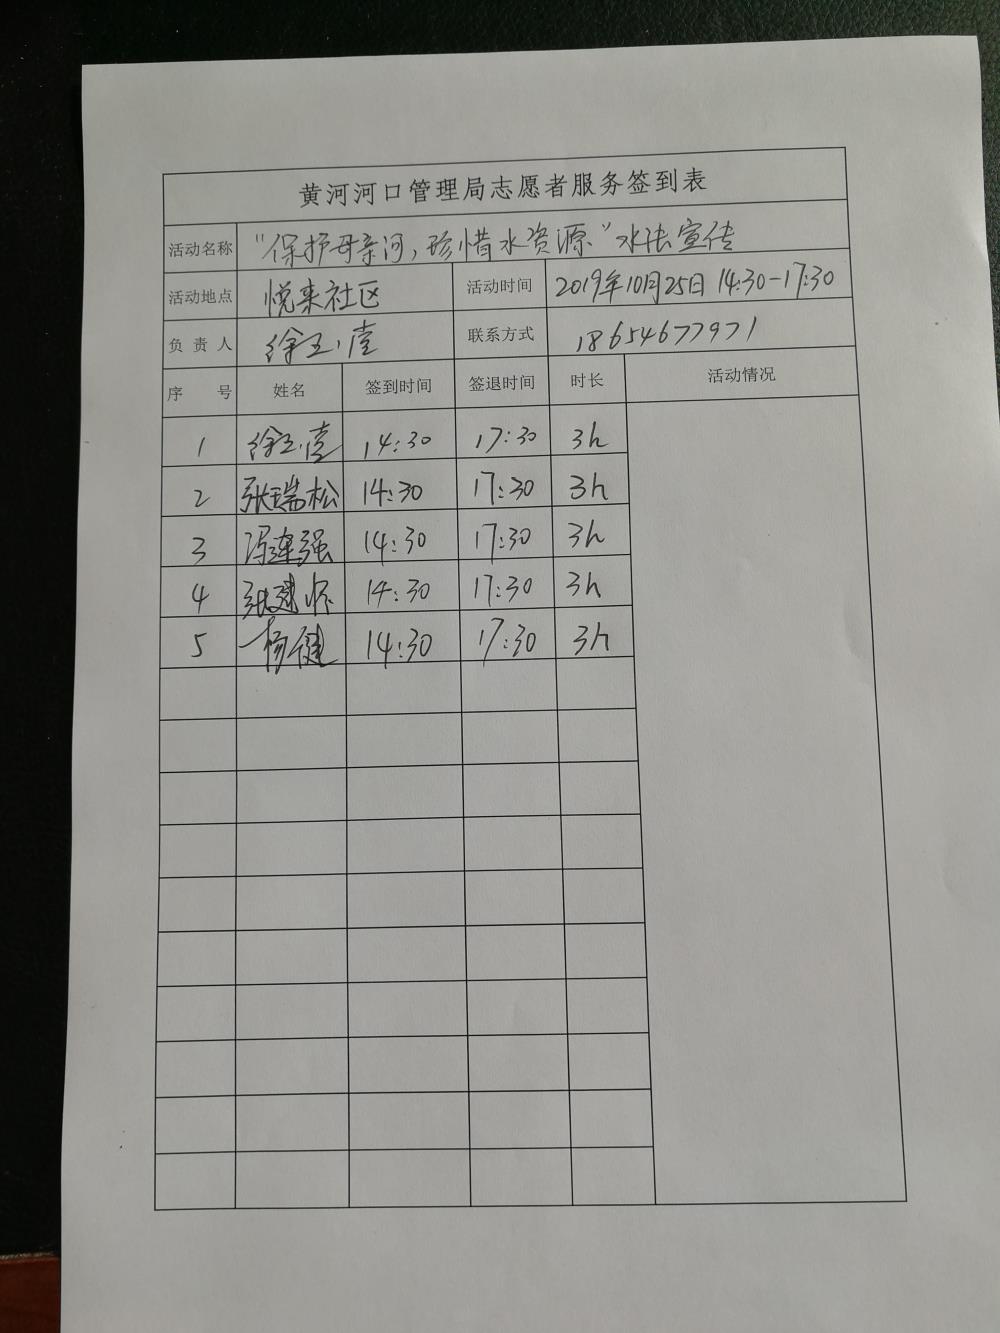 黄河河口管理局志愿者服务签到表
活动名称 “保护母亲河，珍惜水资源”水法宣传
活动地点 悦来社区 活动时间 2019年10月25日 14:30-17:30
负责人 徐玉 联系方式 18654677971
序号 姓名 签到时间 签退时间 时长 活动情况
1 徐玉 14:30 17:30 3h
2 张瑞松 14:30 17:30 3h
3 冯连强 14:30 17:30 3h
4 张建 14:30 17:30 3h
5 杨健 14:30 17:30 3h